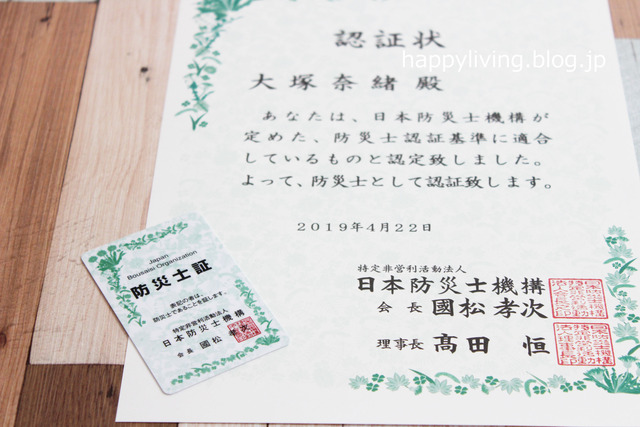 認証状
happyliving.blog.jp
大塚奈緒 殿
あなたは、日本防災士機構が
定めた、防災士認証基準に適合
しているものと認定致しました。
よって、防災士として認証致します。
2019年4月22日
特定非営利活動法人
日本防災士機構
会長 國松孝次
理事長 髙田 恒
Japan
Bousaisi Organization
防災士証
表記の者は、
防災士であることを証します。
特定非営利活動法人
日本防災士機構
会長 國松孝次